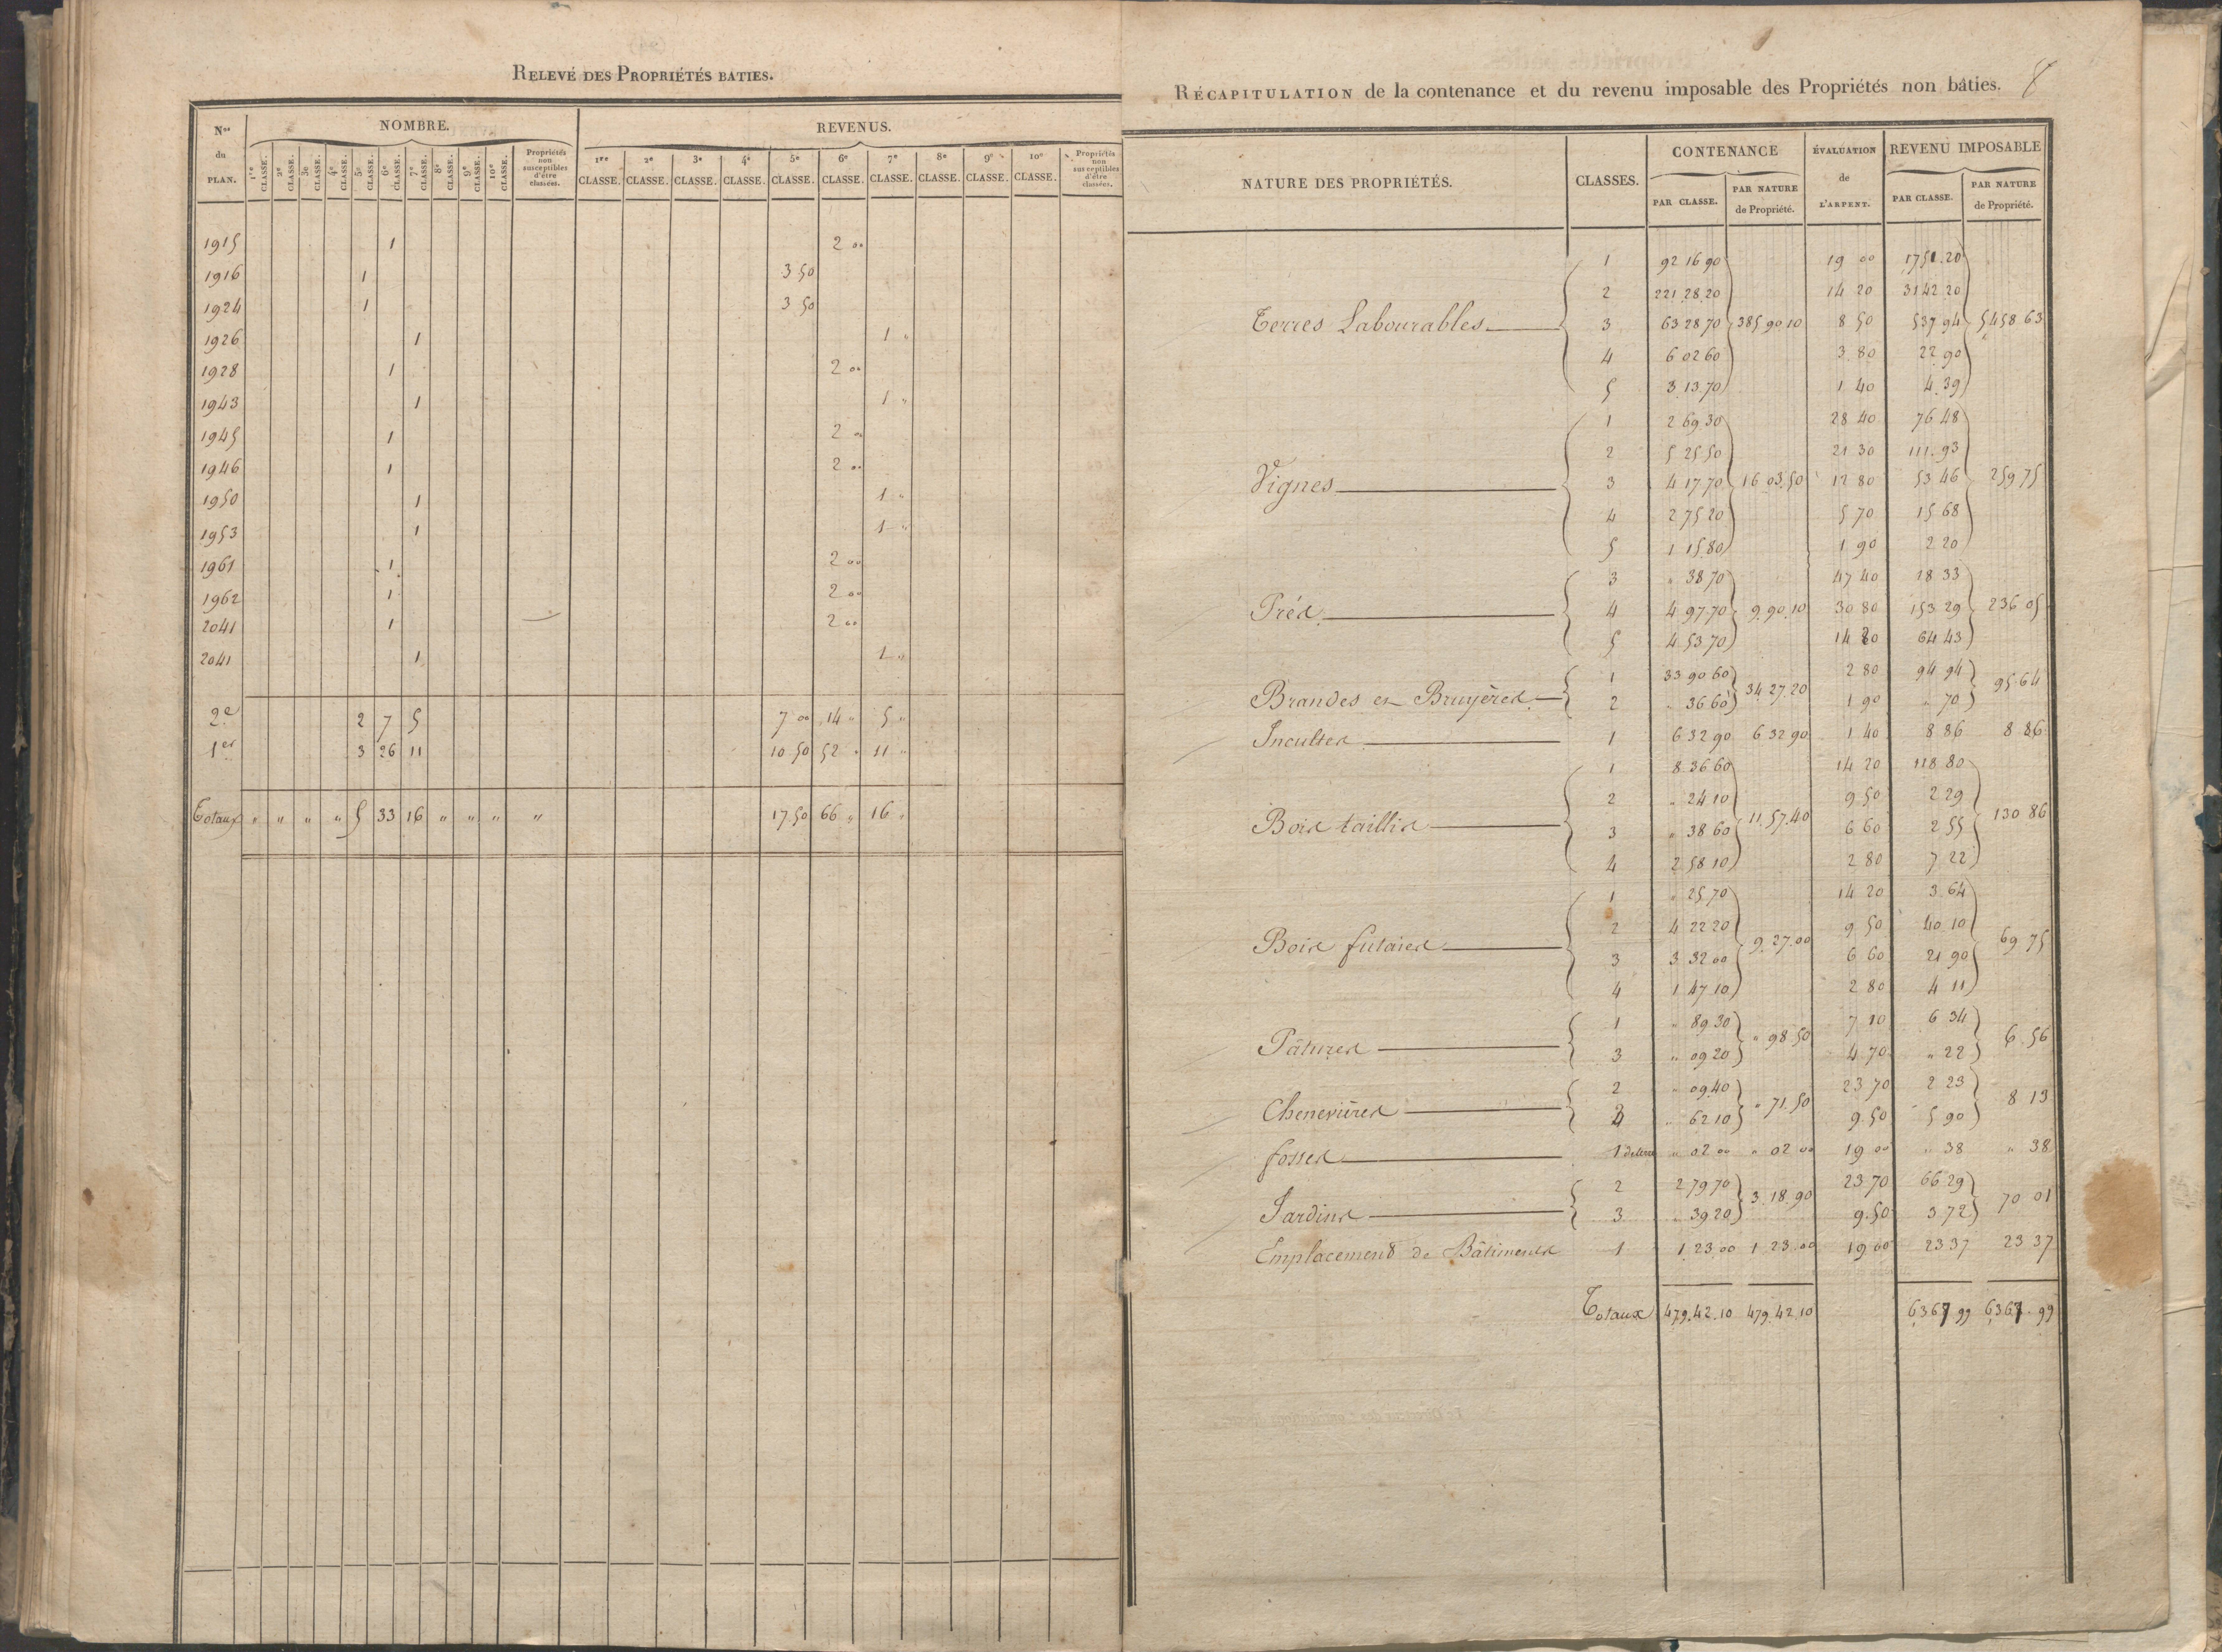 RELEVÉ DES PROPRIÉTÉS BATIES.
Nos du PLAN. NOMBRE. REVENUS.
1re CLASSE. 2e CLASSE. 3e CLASSE. 4e CLASSE. 5e CLASSE. 6e CLASSE. 7e CLASSE. 8e CLASSE. 9e CLASSE. 10e CLASSE. Propriétés non susceptibles d'être classées. 1re CLASSE. 2e CLASSE. 3e CLASSE. 4e CLASSE. 5e CLASSE. 6e CLASSE. 7e CLASSE. 8e CLASSE. 9e CLASSE. 10e CLASSE. Propriétés non susceptibles d'être classées.
1915 1 2 00
1916 1 3 50
1924 1 3 50
1926 1 1 "
1928 1 2 00
1943 1 1 "
1945 1 2 00
1946 1 2 00
1950 1 1 "
1953 1 1 "
1961 1 2 00
1962 1 2 00
2041 1 2 00
2041 1 1 "
2e 2 7 5 7 00 14 " 5 "
1er 3 26 11 10 50 52 " 11 "
Totaux " " " " 5 33 16 " " " " 17.50 66 " 16 "
RÉCAPITULATION de la contenance et du revenu imposable des Propriétés non bâties. 8
NATURE DES PROPRIÉTÉS. CLASSES. CONTENANCE ÉVALUATION de L'ARPENT. REVENU IMPOSABLE
PAR CLASSE. PAR NATURE de Propriété. PAR CLASSE. PAR NATURE de Propriété.
1 92 16 90 19 00 1751.20
2 221.28.20 14 20 3142 20
Terres Labourables 3 63 28 70 385 90 10 8 50 537 94 5458 63
4 6 02 60 3.80 22 90
5 3.13.70 1 40 4.39
1 2 69 30 28 40 76 48
2 5 25 50 21 30 111.93
Vignes 3 4 17 70 16 03.50 12 80 53 46 259 75
4 2 75 20 5 70 15 68
5 1 15 80 1 90 2 20
3 " 38 70 47 40 18 33
Prés 4 4 97.70 9.90.10 30 80 153 29 236 05
5 4 53 70 14 20 64 43
1 33 90 60 2 80 94 94
Brandes et Bruyères 34.27.20 95 64
2 " 36 60 1 90 " 70
Incultes 1 6 32 90 6 32 90 1 40 8 86 8 86
1 8.36 60 14 20 118 80
2 " 24 10 9.50 2 29
Bois taillis 11.57.40 130 86
3 " 38 60 6 60 2 55
4 2 58 10 2 80 7 22
1 " 25 70 14 20 3.64
2 4 22 20 9.50 40 10
Bois futaies 9.27.00 69 75
3 3 32 00 6 60 21 90
4 1 47 10 2 80 4 11
1 " 89.30 7 10 6 34
Pâtures " 98.50 6.56
3 " 09 20 4.70 " 22
2 " 09.40 23 70 2 23
Chenevières " 71.50 8 13
62 10 9.50 5 90
fosses 1 de terre " 02 00 " 02 00 19 00 " 38 " 38
2 2 79 70 23 70 66 29
Jardins 3.18.90 70 01
3 " 39 20 9.50 3 72
Emplacement de Bâtiments 1 1.23 00 1 23.00 19.00 23 37 23 37
Totaux 479.42.10 479.42.10 6367 99 6367.99